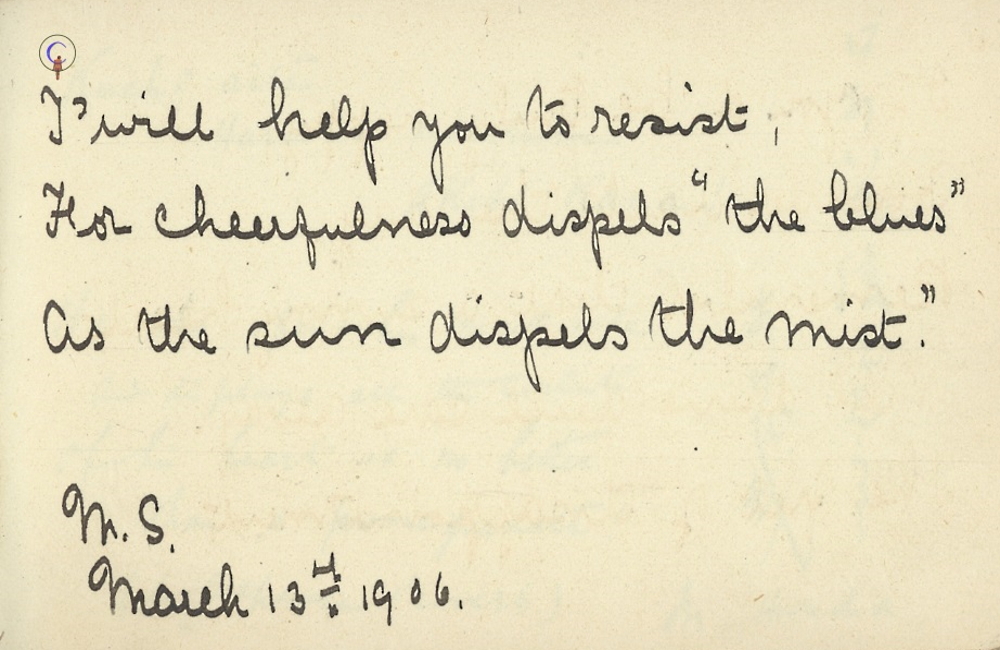 I'will help you to resist,
For cheerfulness dispels "the blues"
As the sun dispels the mist."
M.S.
March 13th 1906.